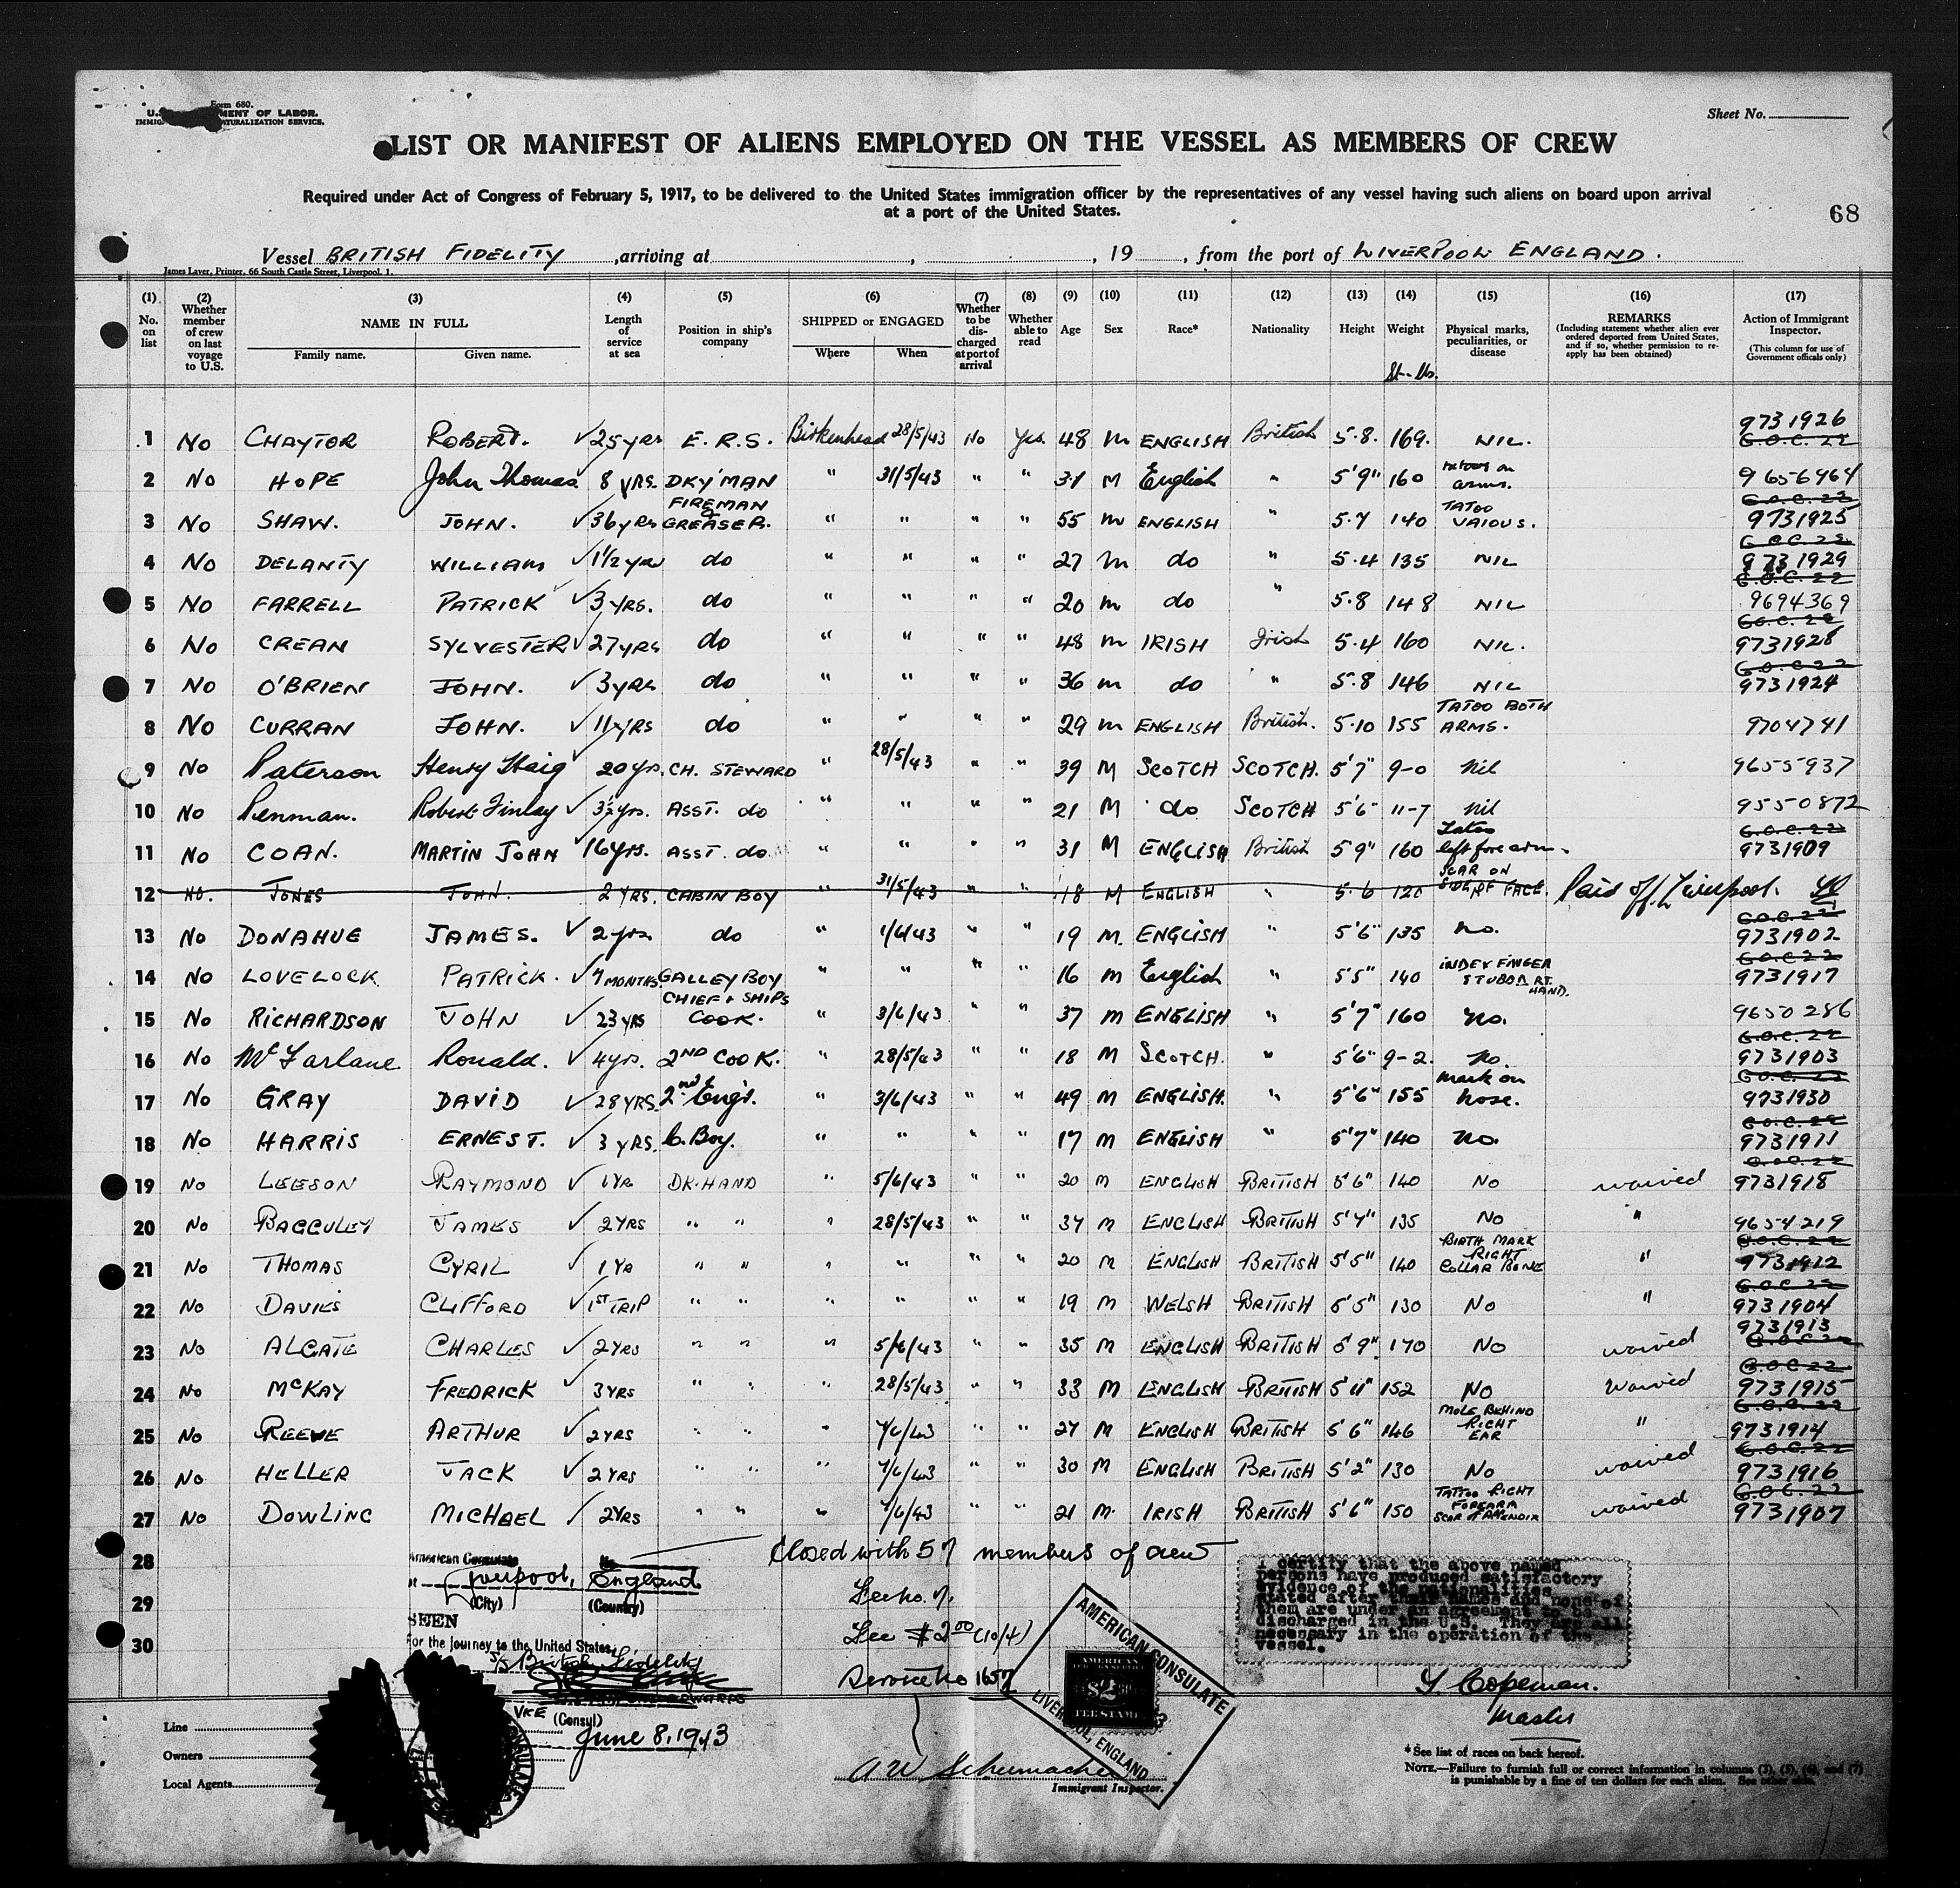 Form 680.
U.S. MENT OF LABOR.
IMMIG NATURALIZATION SERVICE.
Sheet No.
LIST OR MANIFEST OF ALIENS EMPLOYED ON THE VESSEL AS MEMBERS OF CREW
Required under Act of Congress of February 5, 1917, to be delivered to the United States immigration officer by the representatives of any vessel having such aliens on board upon arrival
at a port of the United States.
68
Vessel BRITISH FIDELITY, arriving at , 19 , from the port of LIVERPOOL ENGLAND.
James Laver, Printer, 66 South Castle Street, Liverpool, 1.
(1) No. on list (2) Whether member of crew on last voyage to U.S. (3) NAME IN FULL Family name. Given name. (4) Length of service at sea (5) Position in ship's company (6) SHIPPED or ENGAGED Where When (7) Whether to be discharged at port of arrival (8) Whether able to read (9) Age (10) Sex (11) Race* (12) Nationality (13) Height (14) Weight St-lbs. (15) Physical marks, peculiarities, or disease (16) REMARKS (Including statement whether alien ever ordered deported from United States, and if so, whether permission to re-apply has been obtained) (17) Action of Immigrant Inspector. (This column for use of Government officals only)
1 No CHAYTOR ROBERT. ✓ 25 yrs E.R.S. Birkenhead 28/5/43 No Yes 48 m ENGLISH British 5.8. 169. NIL. 9731926 G.O.C. 22
2 No HOPE John Thomas 8 YRS. DKY'MAN " 31/5/43 " " 31 M English " 5'9" 160 tatoos on arms. 9656964
3 No SHAW. JOHN. ✓ 36 yrs FIREMAN & GREASER. " " " " 55 m ENGLISH " 5.7 140 TATOO VAIOUS. G.O.C. 22 9731925
4 No DELANTY WILLIAM ✓ 1½ yrs do " " " " 27 m do " 5.4 135 NIL G.O.C. 22 9731929
5 No FARRELL PATRICK ✓ 3 YRS. do " " " " 20 m do " 5.8 148 NIL G.O.C. 22 9694369
6 No CREAN SYLVESTER ✓ 27 YRS do " " " " 48 m IRISH Irish 5.4 160 NIL. G.O.C. 22 9731928
7 No O'BRIEN JOHN. ✓ 3 yrs do " " " " 36 m do " 5.8 146 NIL G.O.C. 22 9731924
8 No CURRAN JOHN. ✓ 11 YRS do " " " " 29 m ENGLISH British. 5.10 155 TATOO BOTH ARMS. 9704741
9 No Paterson Henry Haig ✓ 20 yrs. CH. STEWARD " 28/5/43 " " 39 M SCOTCH SCOTCH. 5'7" 9-0 Nil 9655937
10 No Penman. Robert Finlay ✓ 3½ yrs. ASST. do " " " " 21 M do SCOTCH 5'6" 11-7 Nil 9550872
11 No COAN. MARTIN JOHN ✓ 16 yrs. ASST. do " " " " 31 M ENGLISH British 5'9" 160 Tatoo left fore arm. G.O.C. 22 9731909
12 NO. JONES JOHN. 2 YRS. CABIN BOY " 31/5/43 " " 18 M ENGLISH " 5.6 120 SCAR ON SIDE OF FACE. Paid off Liverpool.
13 No DONAHUE JAMES. ✓ 2 yrs do " 1/6/43 " " 19 M. ENGLISH " 5'6" 135 no. G.O.C. 22 9731902
14 No LOVELOCK PATRICK. ✓ 7 MONTHS GALLEY BOY " " " " 16 m English " 5'5" 140 INDEX FINGER STUBBD RT. HAND. G.O.C. 22 9731917
15 No RICHARDSON JOHN ✓ 23 YRS CHIEF & SHIPS COOK. " 3/6/43 " " 37 m ENGLISH " 5'7" 160 no. 9650286
16 No McFarlane Ronald. ✓ 4 yrs. 2ND COOK. " 28/5/43 " " 18 M SCOTCH. " 5'6" 9-2. No G.O.C. 22 9731903
17 No GRAY DAVID ✓ 28 YRS. 2nd Engr. " 3/6/43 " " 49 m ENGLISH. " 5'6" 155 mark on nose. G.O.C. 22 9731930
18 No HARRIS ERNEST. ✓ 3 YRS. C. Boy. " " " " 17 m ENGLISH " 5'7" 140 no. G.O.C. 22 9731911
19 No LEESON RAYMOND ✓ 1 YR DK. HAND " 5/6/43 " " 20 m ENGLISH BRITISH 5'6" 140 No waived G.O.C. 22 9731918
20 No BAGGULEY JAMES ✓ 2 YRS " " " 28/5/43 " " 37 m ENGLISH BRITISH 5'7" 135 No " 9654219
21 No THOMAS CYRIL ✓ 1 YR " " " " " " 20 m ENGLISH BRITISH 5'5" 140 BIRTH MARK RIGHT COLLAR BONE " G.O.C. 22 9731912
22 No DAVIES CLIFFORD ✓ 1ST TRIP " " " " " " 19 M WELSH BRITISH 5'5" 130 No " G.O.C. 22 9731904
23 No ALGATE CHARLES ✓ 2 YRS " " " 5/6/43 " " 35 m ENGLISH BRITISH 5'9" 170 No waived 9731913 G.O.C. 22
24 No McKAY FREDRICK ✓ 3 YRS " " " 28/5/43 " " 33 M ENGLISH BRITISH 5'11" 152 No waived G.O.C. 22 9731915
25 No REEVE ARTHUR ✓ 2 YRS " " " 7/6/43 " " 27 M ENGLISH BRITISH 5'6" 146 MOLE BEHIND RIGHT EAR " G.O.C. 22 9731914
26 No HELLER JACK ✓ 2 YRS " " " 7/6/43 " " 30 M ENGLISH BRITISH 5'2" 130 No waived G.O.C. 22 9731916
27 No DOWLING MICHAEL ✓ 2 YRS " " " 7/6/43 " " 21 M. IRISH BRITISH 5'6" 150 TATTOO RIGHT FOREARM SCAR OF APENDIX waived G.O.C. 22 9731907
28 Closed with 57 members of crew
29
30
American Consulate
at Liverpool, England
(City) (Country)
SEEN
For the journey to the United States,
S/S British Fidelity
VICE (Consul)
June 8, 1943
Fee no. 7.
Fee $2.00 (10/4)
Service no 1657
AMERICAN CONSULATE
LIVERPOOL, ENGLAND
AMERICAN
$2
FEE STAMP
I certify that the above named
persons have produced satisfactory
evidence of the nationalities
stated after their names and none of
them are under an agreement to be
discharged in the U.S. They are all
necessary in the operation of the
vessel.
Y. Copeman.
Master
Line
Owners
Local Agents
A W Schumacher
Immigrant Inspector.
*See list of races on back hereof.
NOTE.—Failure to furnish full or correct information in columns (3), (5), (6), and (7)
is punishable by a fine of ten dollars for each alien. See other side.